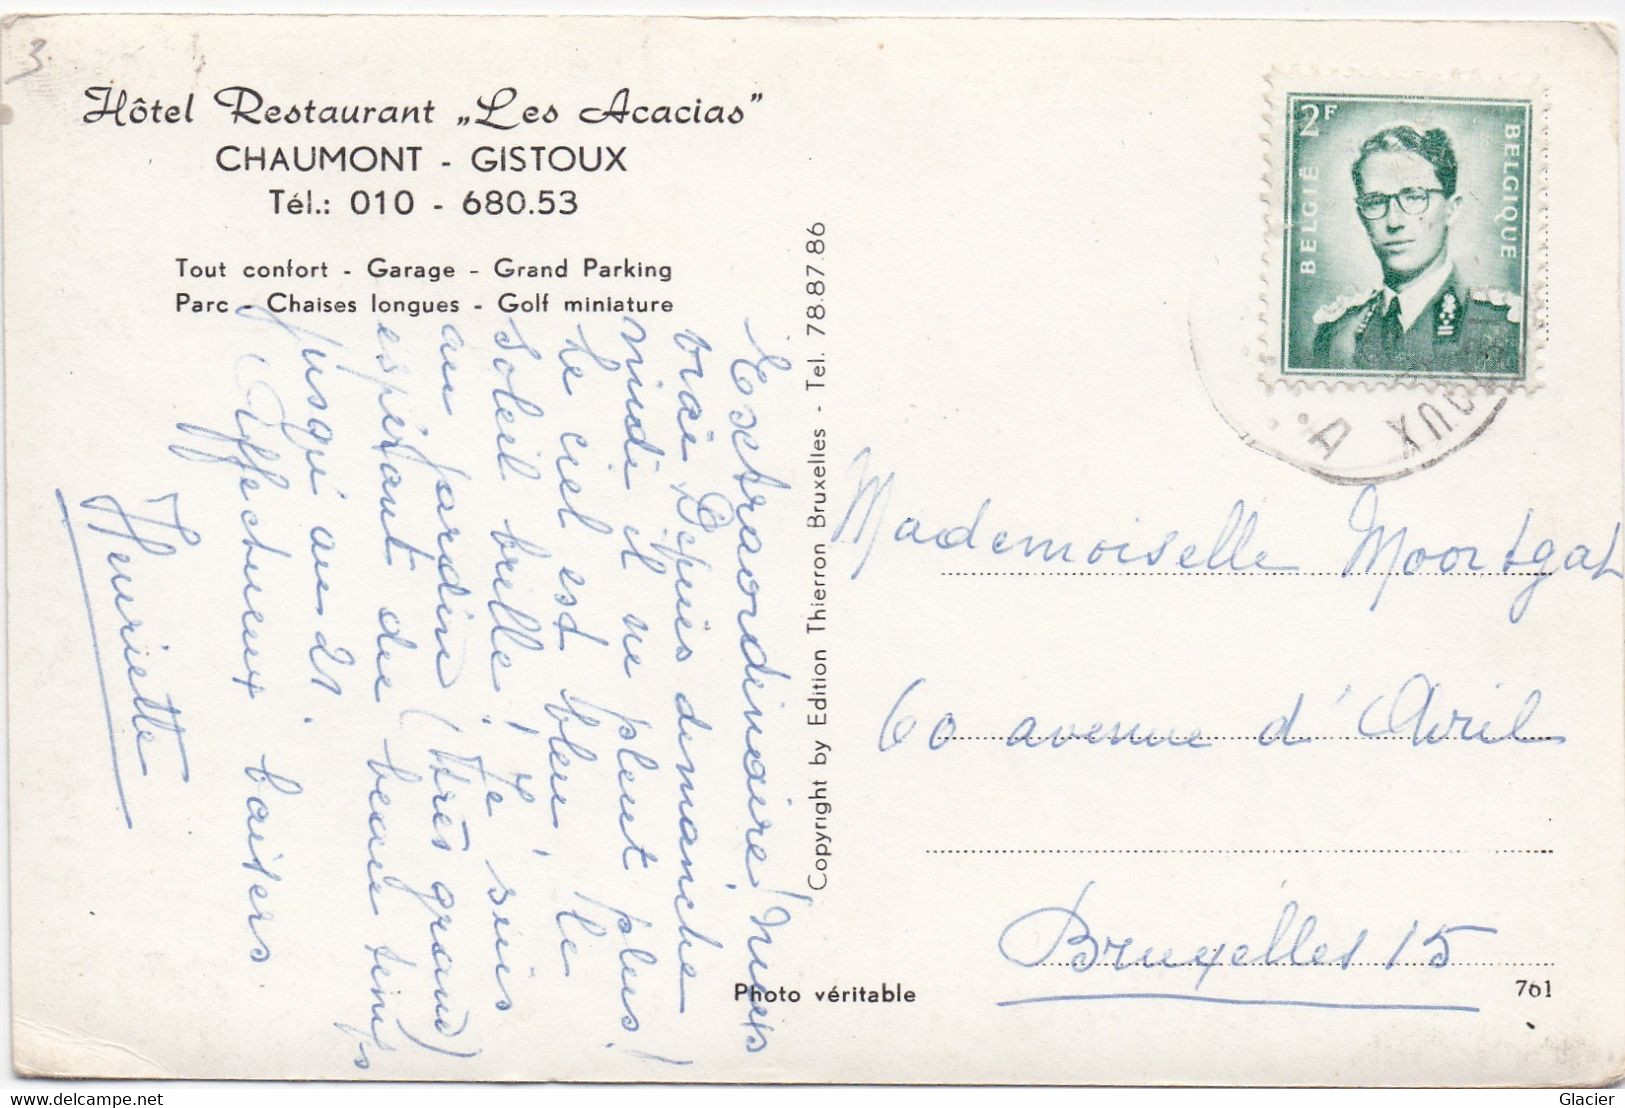 3
Hôtel Restaurant „Les Acacias”
CHAUMONT - GISTOUX
Tél.: 010 - 680.53
Tout confort - Garage - Grand Parking
Parc - Chaises longues - Golf miniature
Extraordinaire! mais
vrai Depuis dimanche
midi il ne pleut plus!
le ciel est bleu, le
soleil brille! Je suis
au jardin (très grand)
espérant du beau temps
jusqu'au 21.
Affectueux baisers
Henriette
Copyright by Edition Thierron Bruxelles - Tel. 78.87.86
Photo véritable
2F
BELGIË
BELGIQUE
OUX
A
Mademoiselle Moortgat
60 avenue d'Avril
Bruxelles 15
761
delcampe.net
Glacier